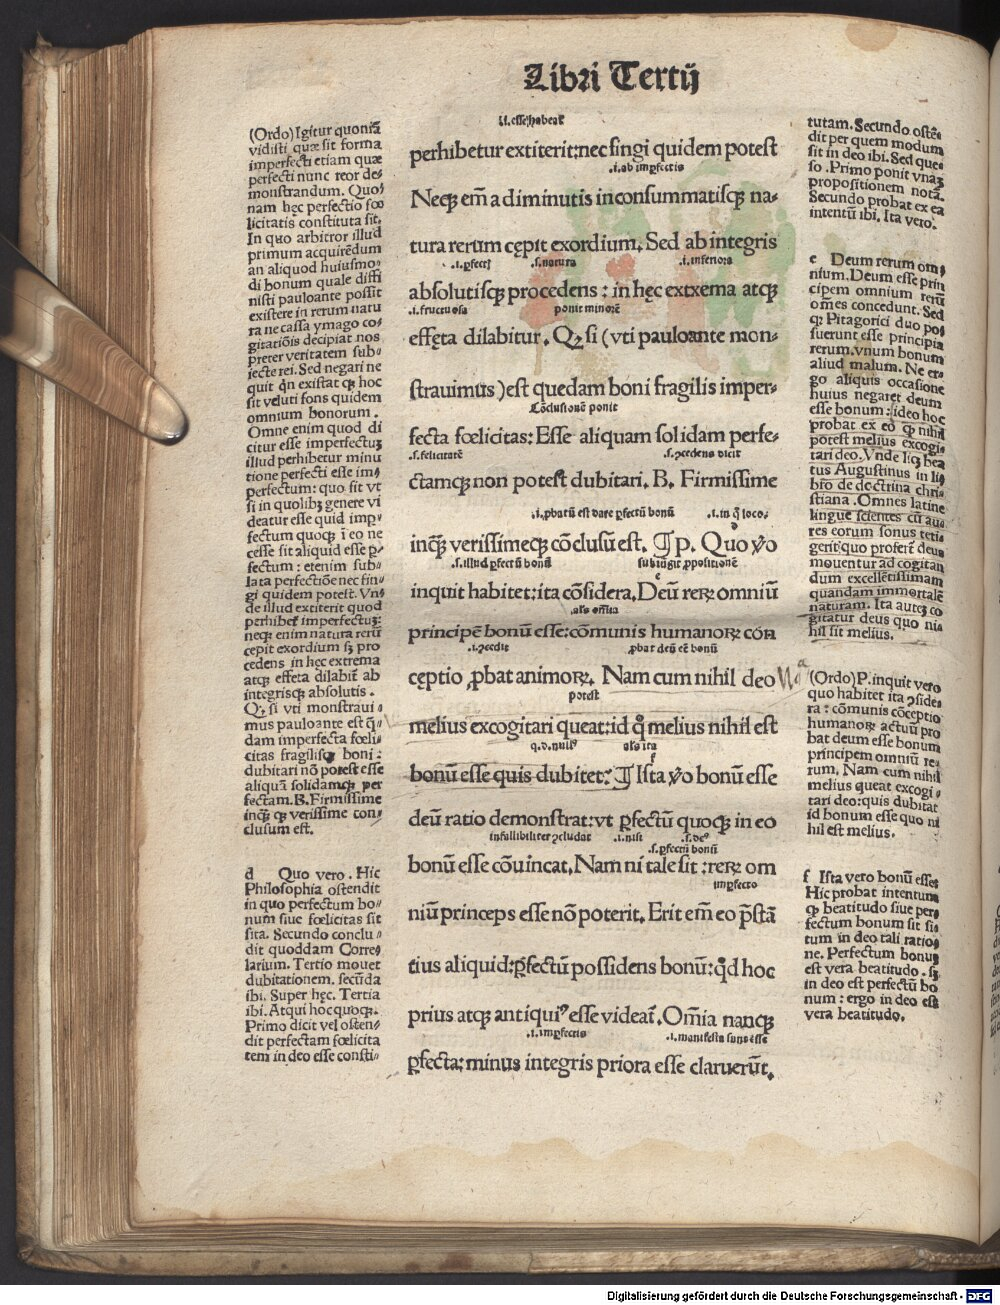 Libri Tertij
(Ordo) Igitur quoniã
vidisti quæ sit forma
imperfecti etiam quæ
perfecti nunc reor de⸗
monstrandum. Quo⸗
nam hęc perfectio fœ
licitatis constituta sit.
In quo arbitror illud
primum acquirēdum
an aliquod huiusmo⸗
di bonum quale diffi
nisti pauloante possit
existere in rerum natu
ra ne cassa ymago co⸗
gitatiōis decipiat nos
preter veritatem sub⸗
iecte rei. Sed negari ne
quit q̇n existat qꝫ hoc
sit veluti fons quidem
omnium bonorum.
Omne enim quod di
citur esse imperfectuꝫ
illud perhibetur minu
tione perfecti esse im⸗
perfectum: quo fit vt
si in quolibꝫ genere vi
deatur esse quid imp⸗
fectum quoqꝫ ī eo ne
cesse sit aliquid esse ꝑ⸗
fectum: etenim sub⸗
lata perfectiōe nec fin⸗
gi quidem potest. Vn⸗
de illud extiterit quod
perhibet᷑ imperfectuꝫ:
neqꝫ enim natura rerū
cepit exordium sꝫ pro
cedens in hęc extrema
atqꝫ effeta dilabit᷑ ab
integrisqꝫ absolutis.
Qꝫ si vti monstraui⸗
mus pauloante est q̄⸗
dam imperfecta fœli⸗
citas fragilisqꝫ boni:
dubitari nō potest esse
aliquā solidamqꝫ per
fectam. B. Firmissime
inqꝫ qꝫ verissime con⸗
clusum est.
d Quo vero. Hic
Philosophia ostendit
in quo perfectum bo⸗
num siue fœlicitas sit
sita. Secundo conclu⸗
dit quoddam Corre⸗
larium. Tertio mouet
dubitationem. secūda
ibi. Super hęc. Tertia
ibi. Atqui hoc quoqꝫ.
Primo dicit vel osten⸗
dit perfectam fœlicita
tem in deo esse consti⸗
.i. esse habeat᷑
perhibetur extiterit: nec fingi quidem potest
.i. ab imꝑfectis
Neqꝫ em̄ a diminutis inconsummatisqꝫ na⸗
tura rerum cępit exordium. Sed ab integris
.i. ꝑfect; .s. natura .i. inferiora
absolutisqꝫ procedens: in hęc extxema atqꝫ
.i. fructuosa ponit minorē
effęta dilabitur. Qꝫ si (vti pauloante mon⸗
strauimus) est quedam boni fragilis imper⸗
Cōclusionē ponit
fecta fœlicitas: Esse aliquam solidam perfe⸗
.s. felicitatē .s. ꝓcedens dicit
ctamqꝫ non potest dubitari. B. Firmissime
.i. ꝓbatū est dare ꝑfectū bonū .i. in q̄ loco
inqꝫ verissimeqꝫ cōclusū est. ¶ P. Quo v̊o
.s. illud ꝑfectū bonū subiūgit ꝓpositionē
inquit habitet: ita cōsidera. Deū reꝝ omniū
principē bonū esse: cōmunis humanoꝝ cōn
.i. ꝓcedit ꝓbat deū eē bonū
cęptio ꝓbat animoꝝ. Nam cum nihil deo
potest
melius excogitari queat: id q̊ melius nihil est
q.d. null⁹
bonū esse quis dubitet? ¶ Ista v̊o bonū esse
deū ratio demonstrat: vt ꝑfectū quoqꝫ in eo
infallibiliter ꝯcludat .i. nisi .s. de⁹
.s. ꝑfectū bonū
bonū esse cōuincat. Nam ni tale sit: reꝝ om
imꝑfecto
niū princeps esse nō poterit. Erit em̄ eo p̄stā
tius aliquid: ꝑfectū possidens bonū: q̊d hoc
prius atqꝫ antiqui⁹ esse videat᷑. Om̄ia nanqꝫ
.i. imꝑfectis .i. manifesta sunt esse
ꝑfecta: minus integris priora esse claruerūt.
tutam. Secundo ostē⸗
dit per quem modum
sit in deo ibi. Sed que⸗
so. Primo ponit vnaꝫ
propositionem notā.
Secundo probat ex ea
intentū ibi. Ita vero.
e Deum rerum om⸗
nium. Deum esse prin
cipem omnium rerū
om̄es concedunt. Sed
qꝫ Pitagorici duo pos
suerunt esse principia
rerum. vnum bonum
aliud malum. Ne er⸗
go aliquis occasione
huius negaret deum
esse bonum: ideo hoc
probat ex eo qꝫ nihil
potest melius excogi
tari deo. Vnde liqꝫ bea
tus Augustinus in li⸗
bro de doctrina chri⸗
stiana. Omnes latine
lingue scientes cū au⸗
res eorum sonus teti⸗
gerit: quo profert᷑ deus
mouentur ad cogitan
dum excellētissimam
quandam immortalē
naturam. Ita auteꝫ co
gitatur deus quo ni⸗
hil sit melius.
Na
(Ordo) P. inquit vero
quo habitet ita ꝯside⸗
ra: cōmunis cōceptio
humanoꝝ actuū pro
bat deum esse bonum
principem omniū re⸗
rum. Nam cum nihil
melius queat excogi⸗
tari deo: quis dubitat
id bonum esse quo ni
hil est melius.
f Ista vero bonū esse
Hic probat intentum
qꝫ beatitudo siue per⸗
fectum bonum sit si⸗
tum in deo tali ratio⸗
ne. Perfectum bonuꝫ
est vera beatitudo. sꝫ
in deo est perfectū bo
num: ergo in deo est
vera beatitudo.
Digitalisierung gefördert durch die Deutsche Forschungsgemeinschaft - DFG